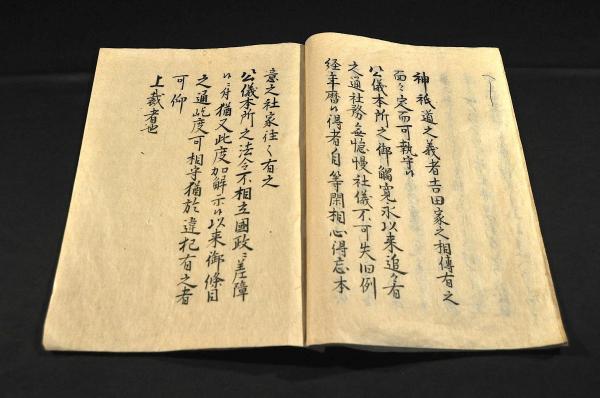 神祇道之義者吉田家之相傳有之
面々定而可執守候
公儀本所之御觸寛永以来追々有
之通社務無怠慢社儀不可失旧例
経年暦候得者自等閑相心得忘本
意之社家往々有之
公儀本所之法令不相立國政ニ差障
候ニ付猶又此度加解示候以来御條目
之通屹度可相守猶於違犯有之者
可仰
上裁者也